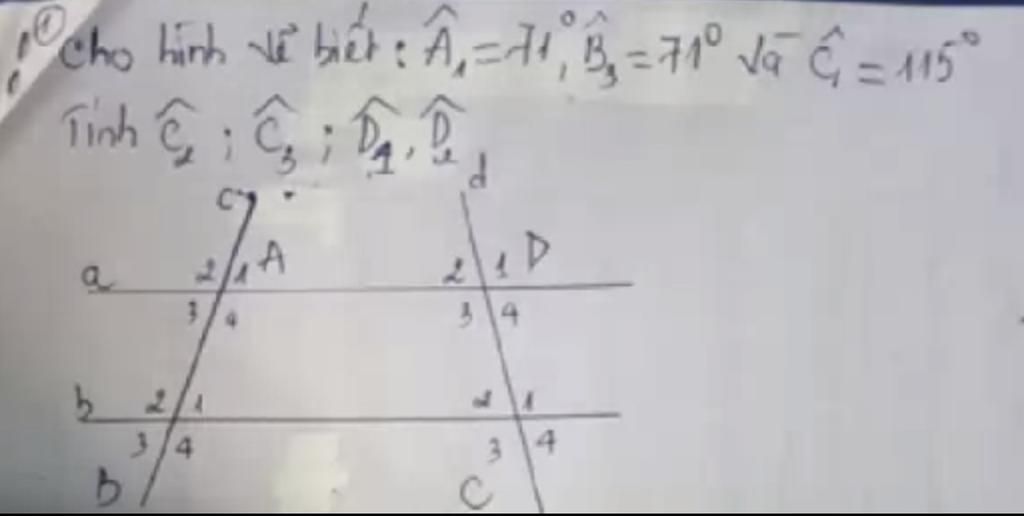 ① Cho hình vẽ biết: Â₁ = 71°, B̂₃ = 71° và Ĉ₁ = 115°
Tính Ĉ₂ ; Ĉ₃ ; D̂₁, D̂₂
c d
a 2 1 A 2 1 D
3 4 3 4
b 2 1 2 1
3 4 3 4
B C